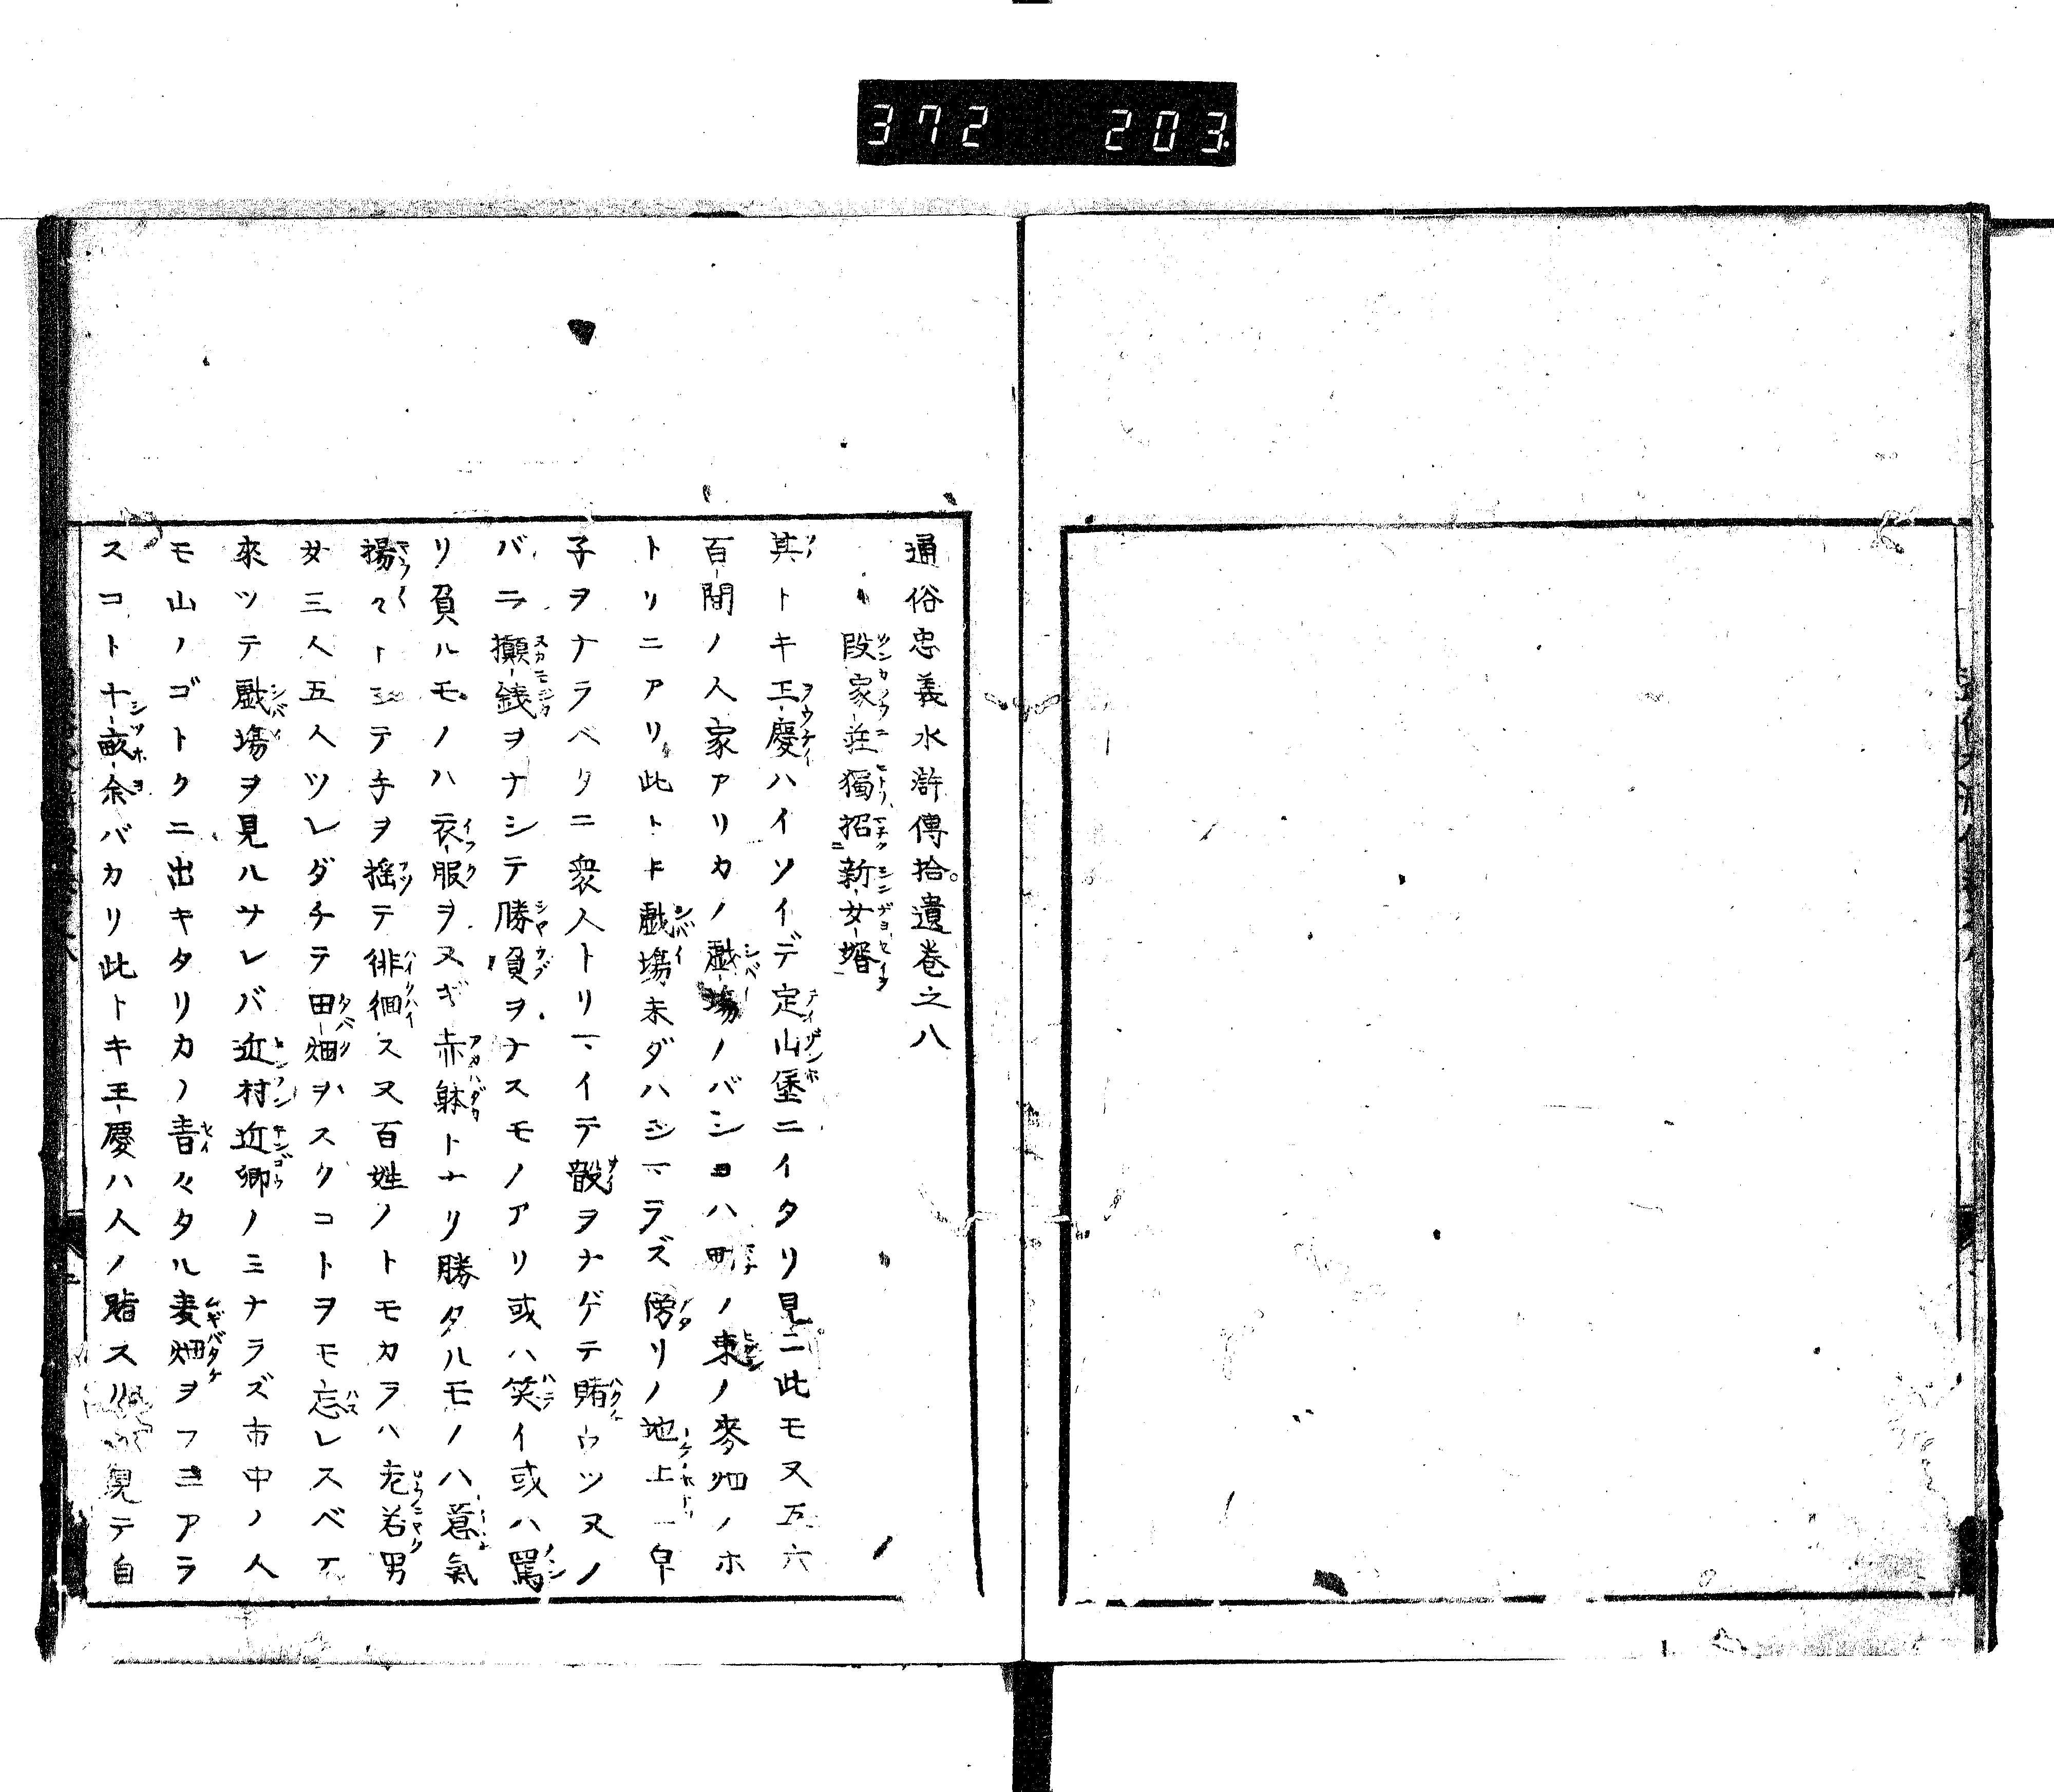 372 203
通俗忠義水滸傳拾遺巻之八
段家莊獨招新女壻
其トキ王慶ハイソイデ定山堡ニイタリ見ニ此モ又五六
百間ノ人家アリカノ戯場ノバショハ町ノ東ノ麥畑ノホ
トリニアリ此トキ戯場未ダハジマラズ傍リノ地上ニ卓
子ヲナラベリニ衆人トリマイテ骰ヲナゲテ賭ウツ又ノ
バニ攧銭ヲナシテ勝負ヲナスモノアリ或ハ笑イ或ハ罵
リ負ルモノハ衣服ヲヌギ赤躰トナリ勝タルモノハ意氣
揚々トシテ手ヲ揺テ徘徊ス又百姓ノトモカラハ老若男
女三人五人ツレダチテ田畑ヲスクコトヲモ忘レスベテ
來ツテ戯場ヲ見ルサレバ近村近郷ノミナラズ市中ノ人
モ山ノゴトクニ出キタリカノ青々タル麦畑ヲフミアラ
スコト十畝余バカリ此トキ王慶ハ人ノ賭スル 見テ自